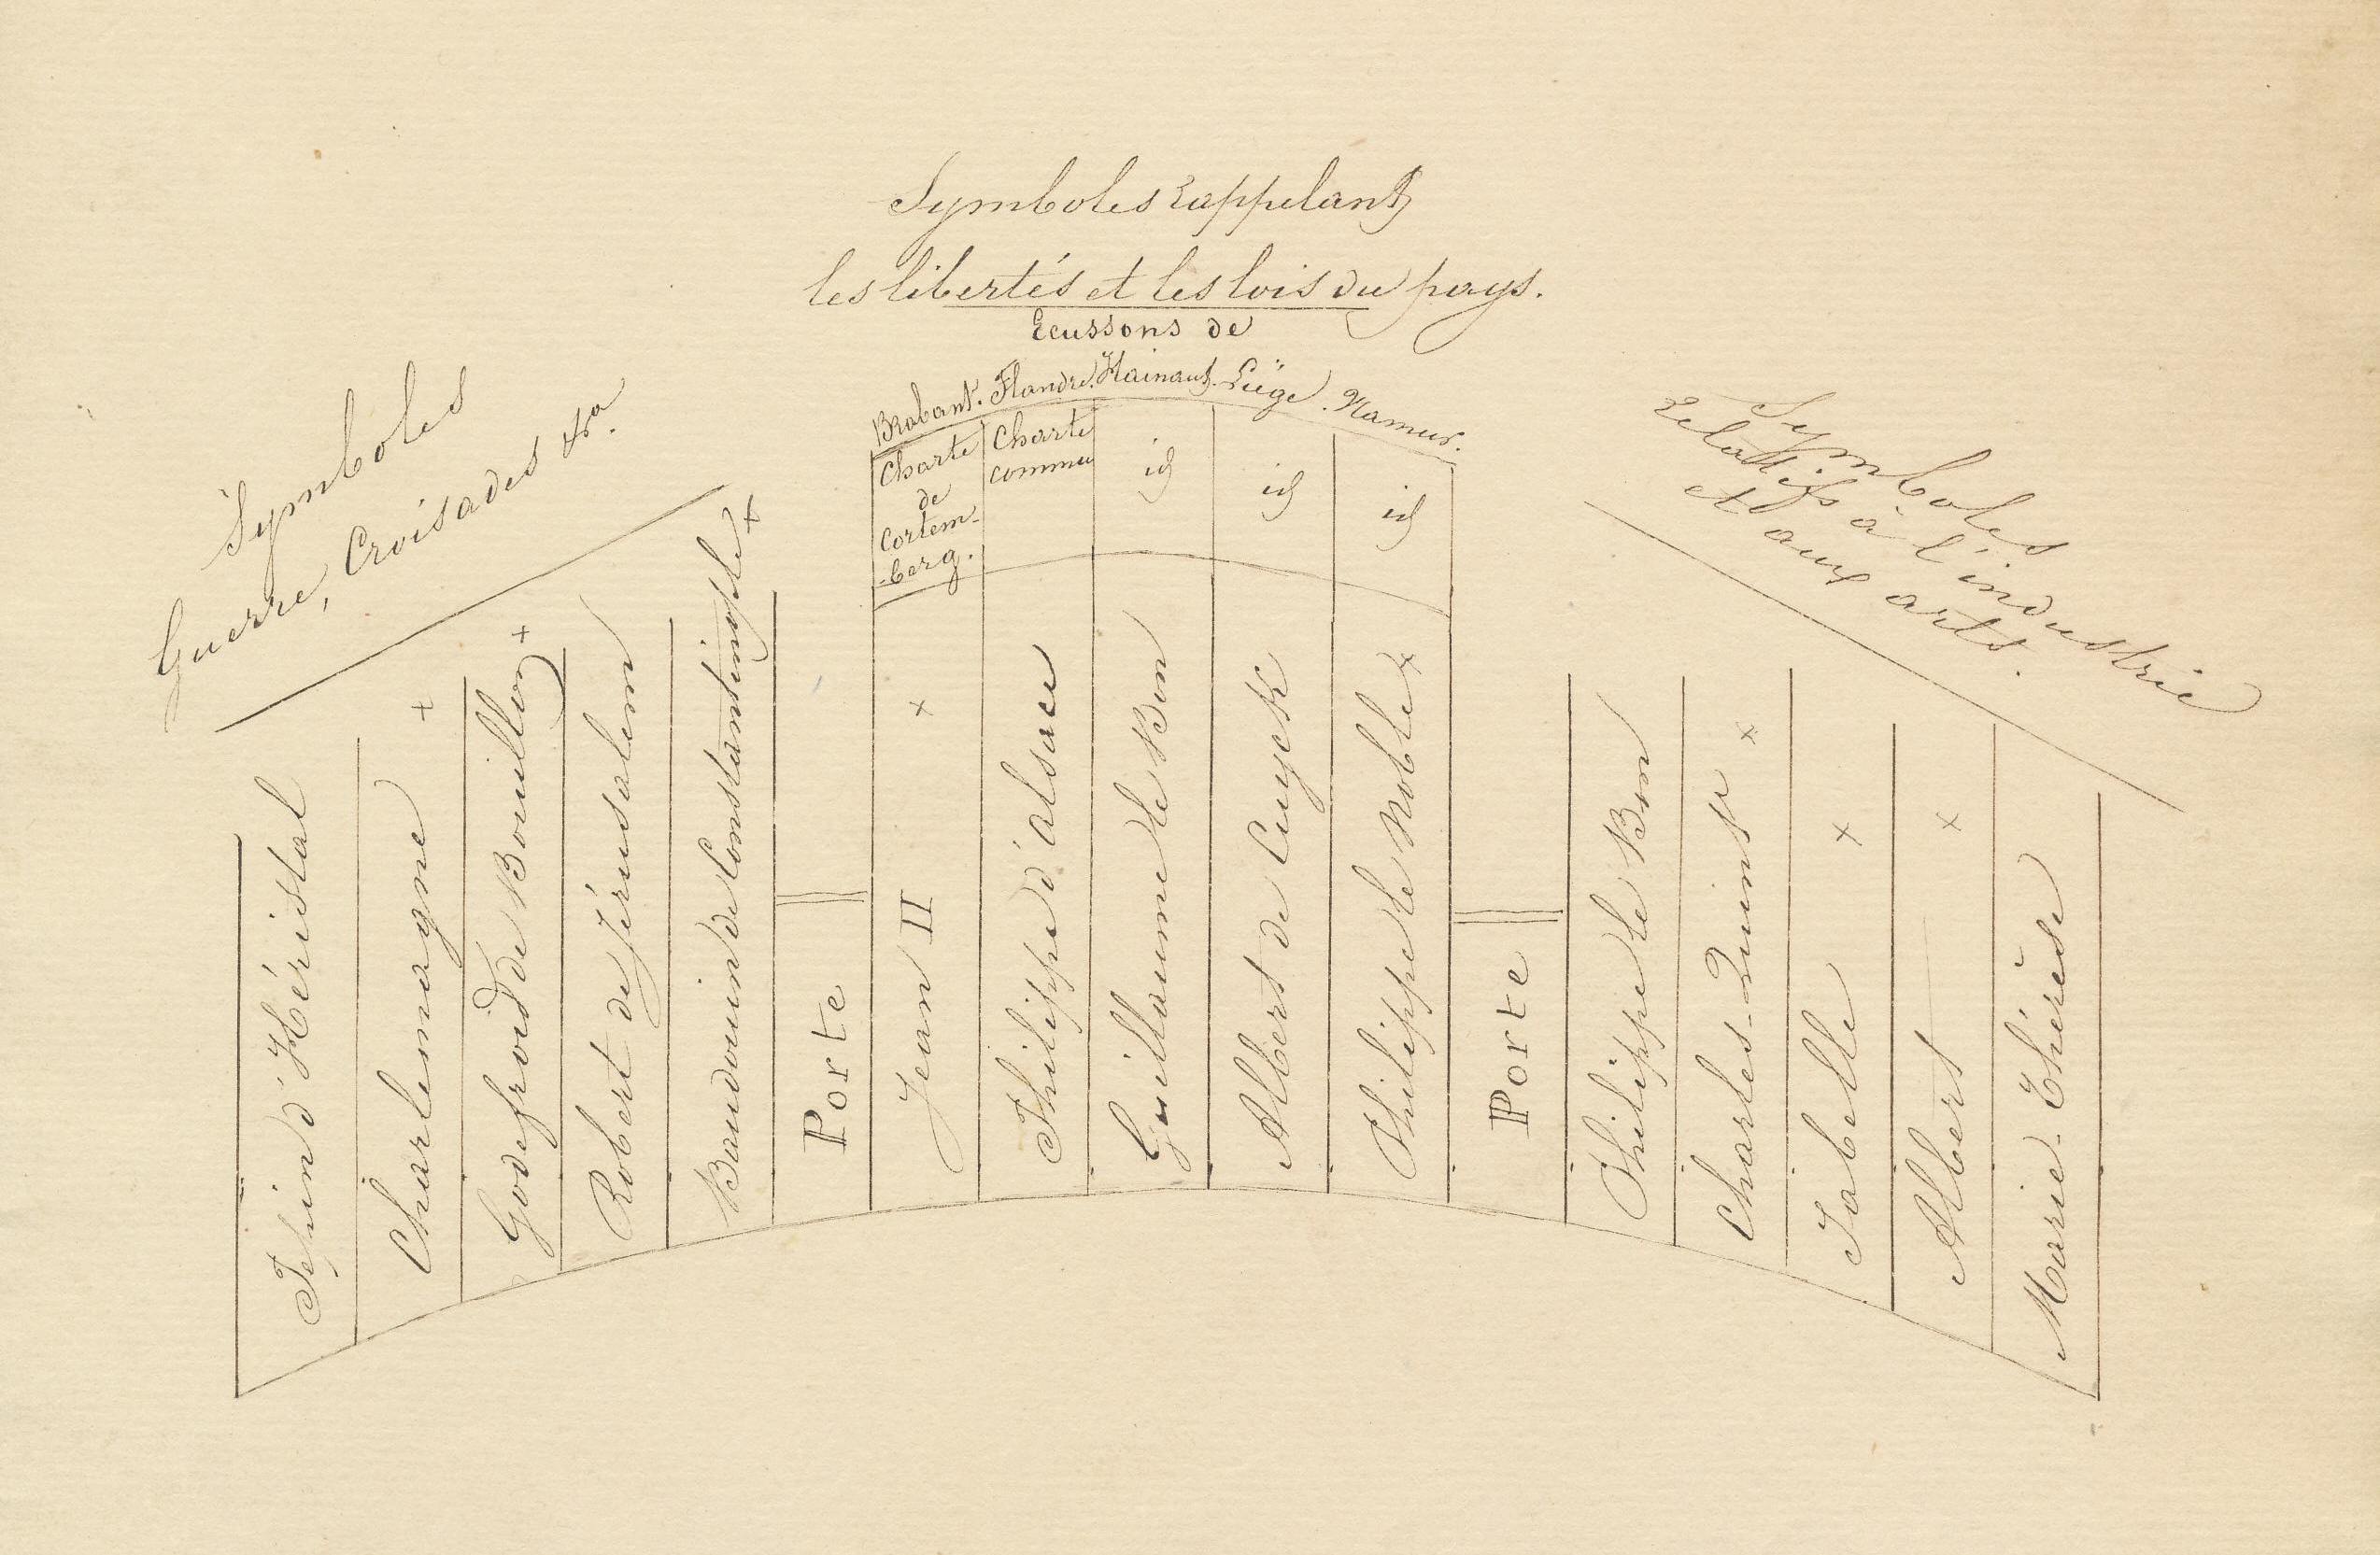 Symboles rappelant
les libertés et les lois du pays.
Ecussons de
Brabant. Flandre. Hainaut. Liège. Namur.
Charte
de
Cortem-
-berg.
Charte
commu
id
id
id
Symboles
Guerre, Croisades &a.
Symboles
relatifs à l'industrie
et aux arts.
Pepin d'Héristal
Charlemagne +
Godefroid de Bouillon +
Robert de Jérusalem
Baudouin de Constantinople +
Porte
Jean II +
Philippe d'Alsace
Guillaume le Bon
Albert de Cuyck
Philippe le Noble +
Porte
Philippe le Bon
Charles-Quint +
Isabelle +
Albert +
Marie-Thérèse